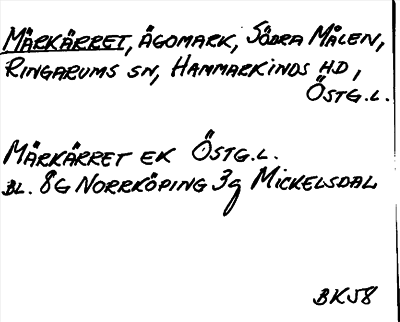 MÄRKÄRRET, ÄGOMARK, SÖDRA MÅLEN,
RINGARUMS SN, HAMMARKINDS HD,
ÖSTG.L.
MÄRKÄRRET EK ÖSTG.L.
BL. 8G NORRKÖPING 3g MICKELSDAL
BK58